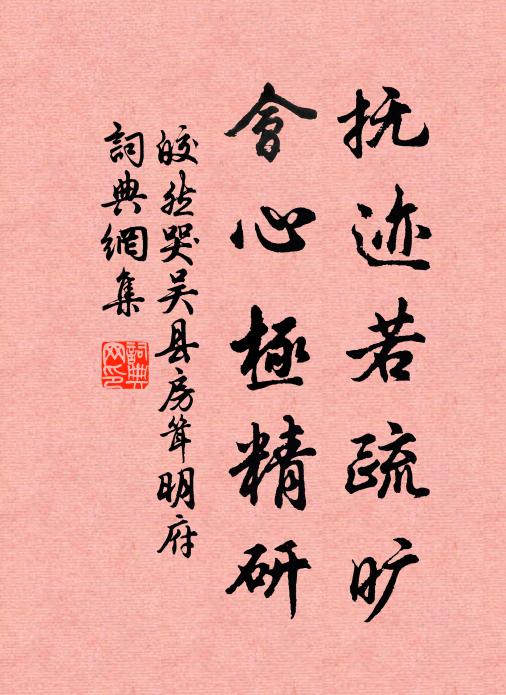 抚迹若疏旷
會心極精研
皎然哭吴县房耸明府
詞典網集
詞典
网印